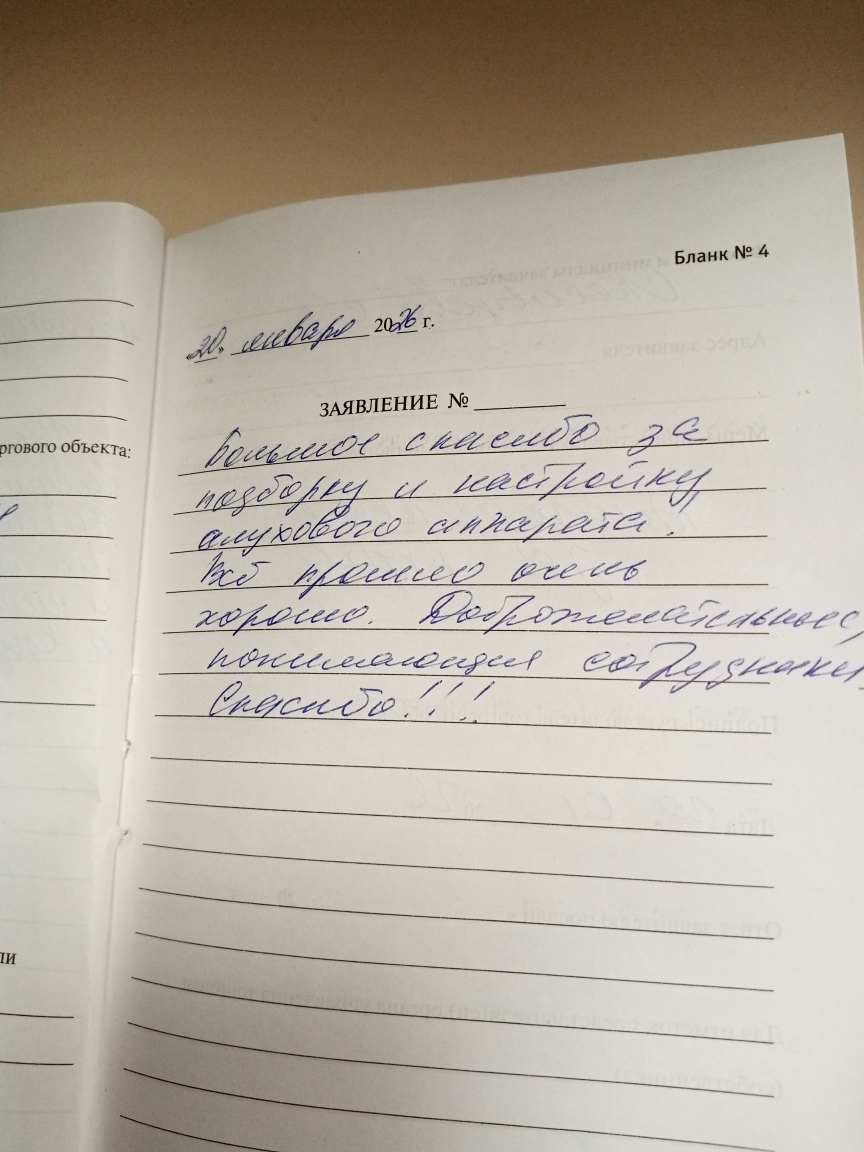 Бланк № 4
«20» января 2026 г.
ЗАЯВЛЕНИЕ №
Большое спасибо за
ргового объекта:
подборку и настройку
слухового аппарата.
Всё прошло очень
хорошо. Доброжелательные,
понимающия сотрудники.
Спасибо!!!
ли